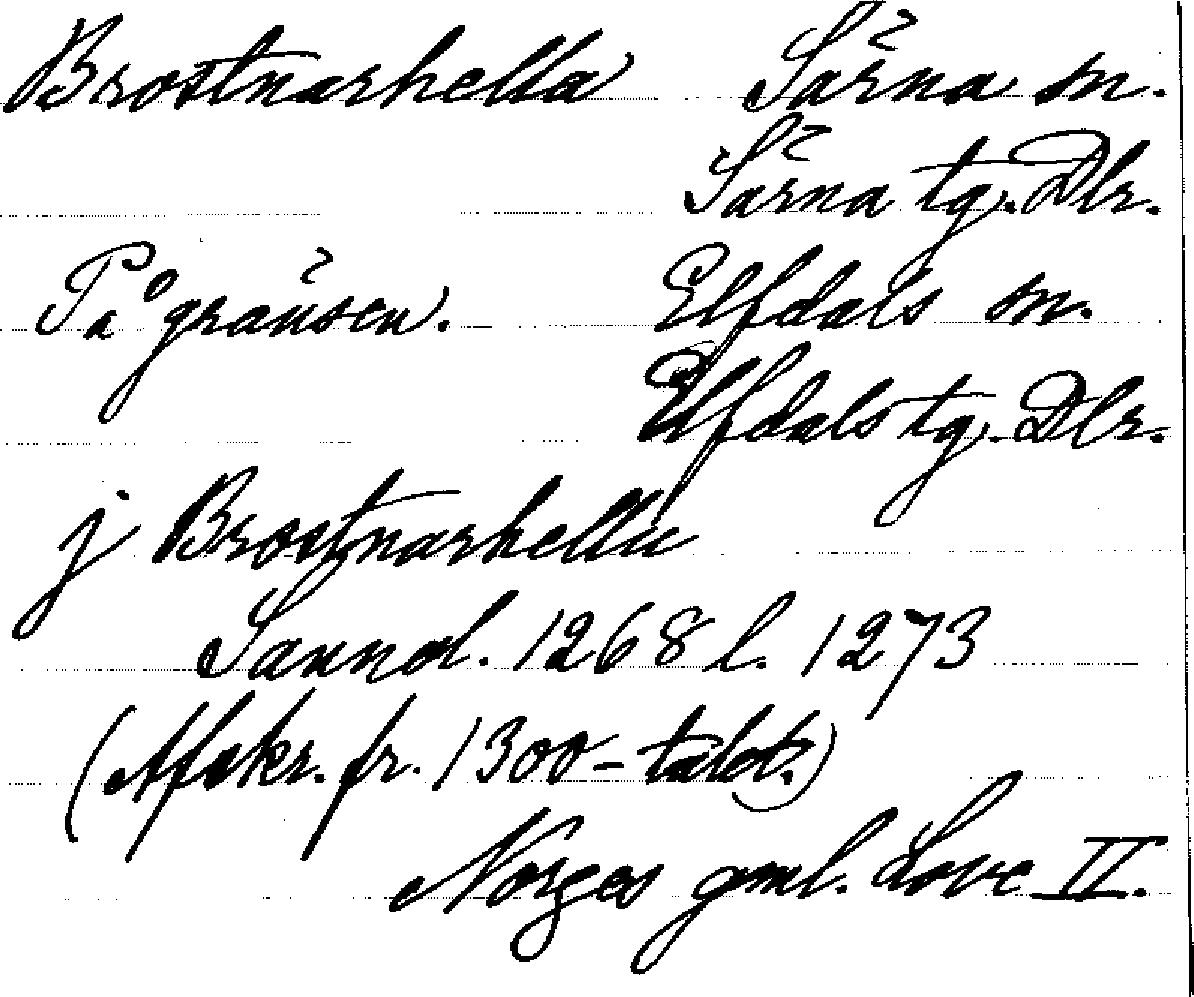 Brostnarhella Särna sn.
Särna tg. Dlr.
På gränsen. Elfdals sn.
Elfdals tg. Dlr.
j Brostnarhellu
Sannol. 1268 l. 1273
(Afskr. fr. 1300-talet.)
Norges gml. Love II.